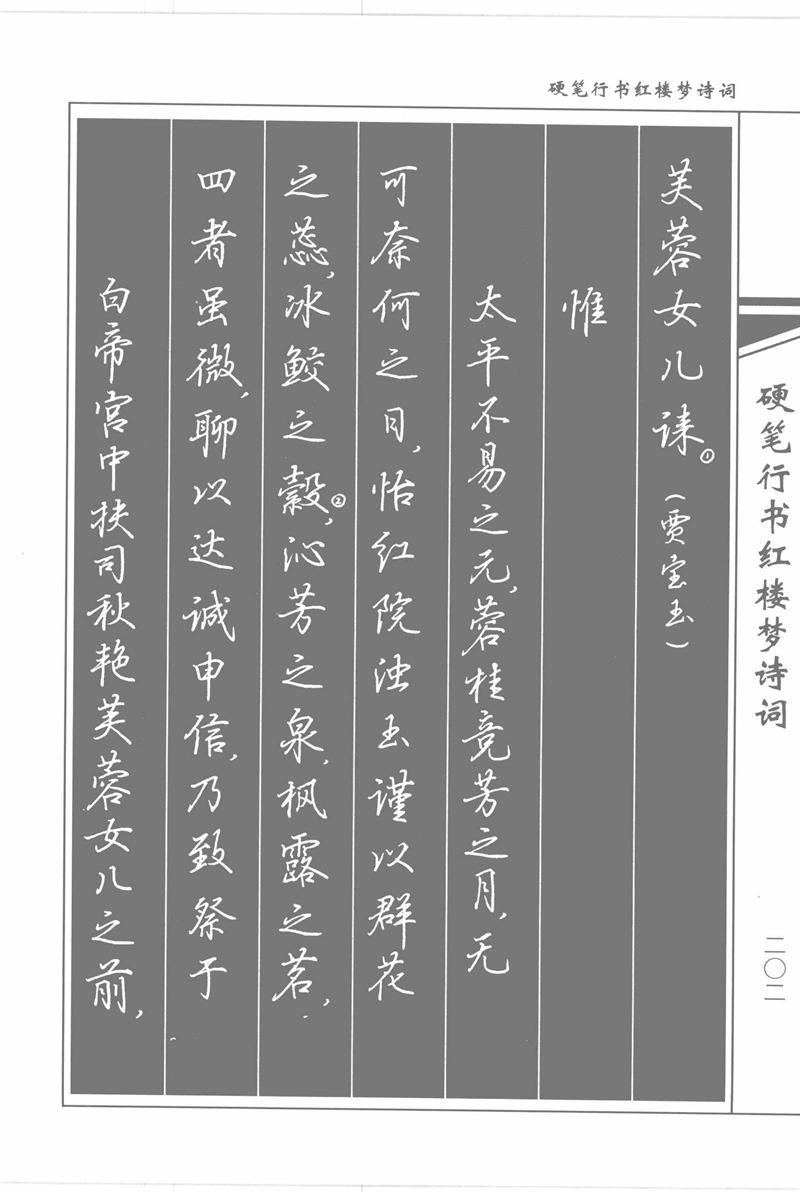 硬笔行书红楼梦诗词
芙蓉女儿诔。①（贾宝玉）
惟
太平不易之元，蓉桂竞芳之月，无
可奈何之日，怡红院浊玉谨以群花
之蕊，冰鲛之縠，②沁芳之泉，枫露之茗，
四者虽微，聊以达诚申信，乃致祭于
白帝宫中抚司秋艳芙蓉女儿之前，
硬笔行书红楼梦诗词
二〇二